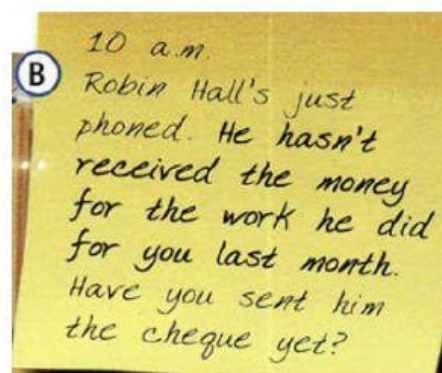 B
10 a.m.
Robin Hall's just
phoned. He hasn't
received the money
for the work he did
for you last month.
Have you sent him
the cheque yet?